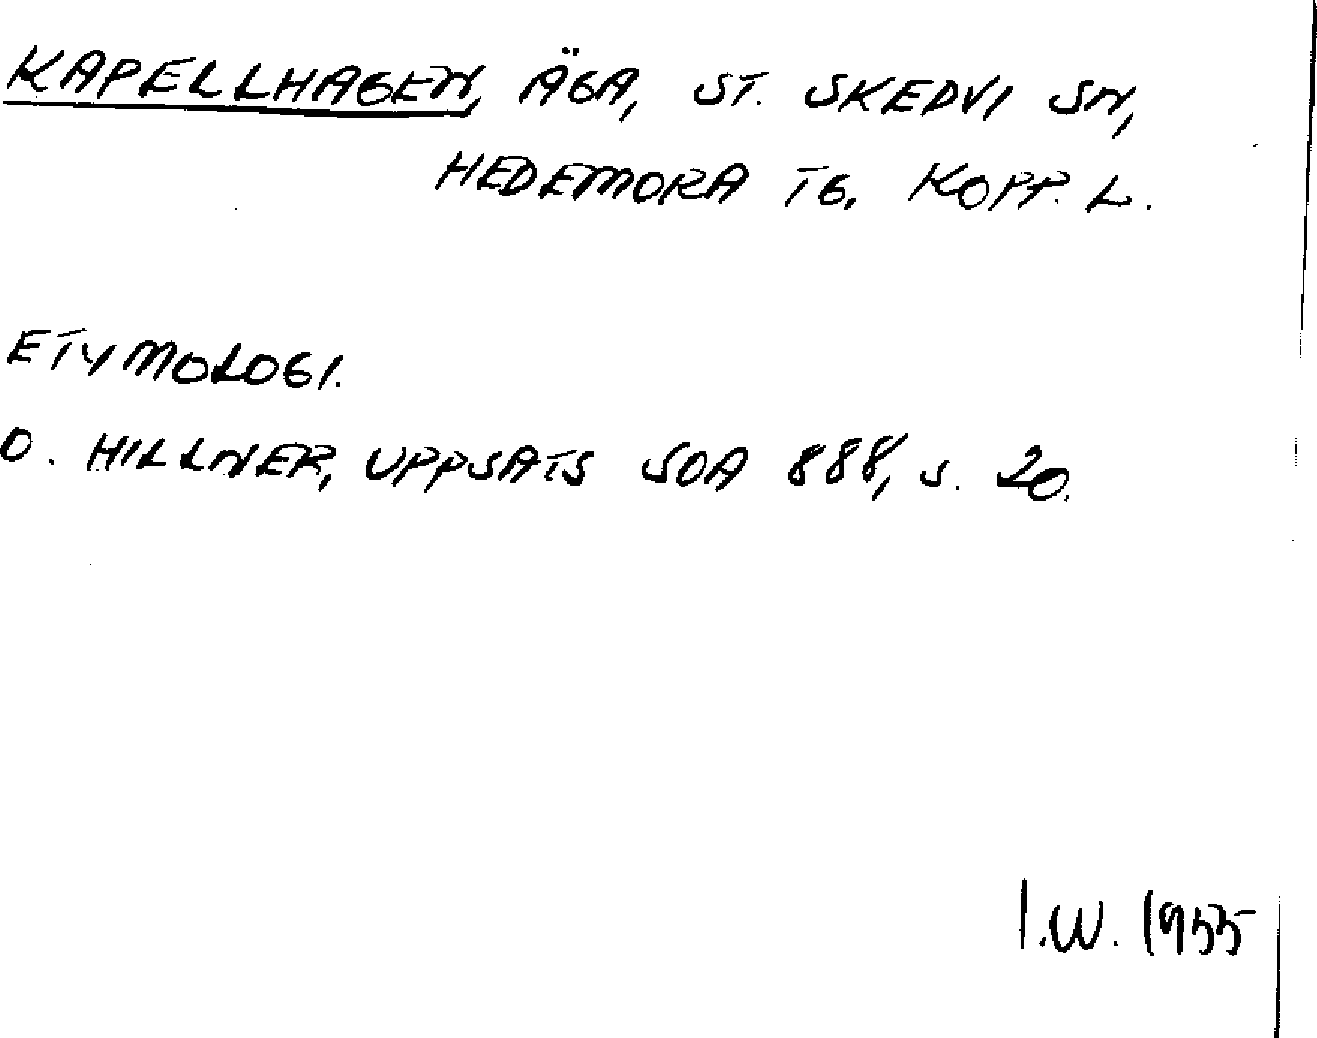 KAPELLHAGEN, ÄGA, ST. SKEDVI SN,
HEDEMORA TG. KOPP. L.
ETYMOLOGI.
O. HILLNER, UPPSATS SOA 888, s. 20.
I.W. 1955